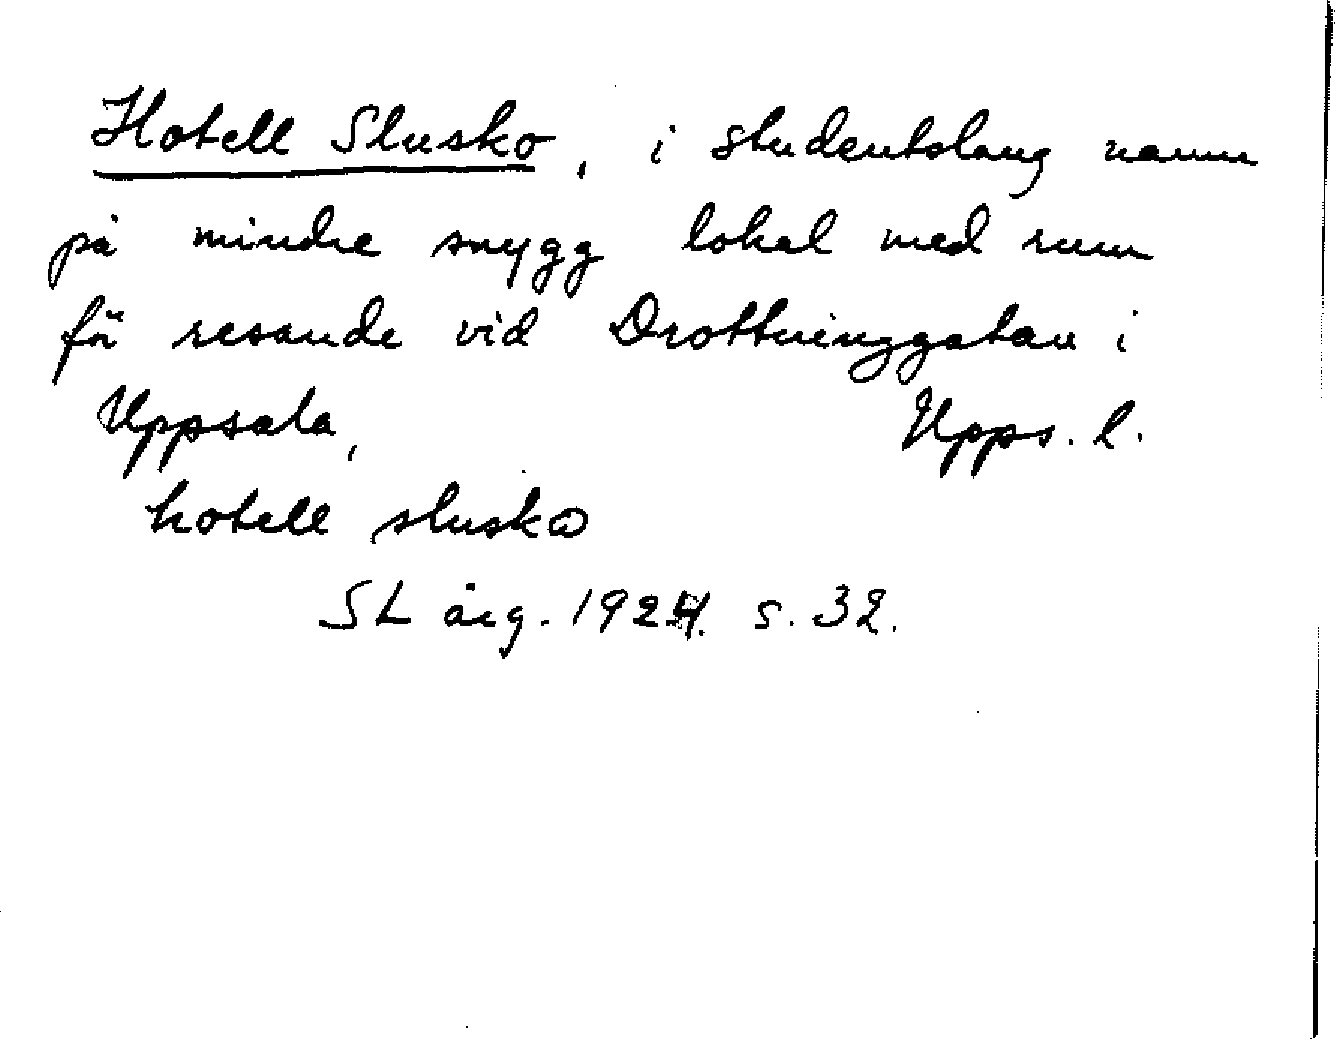 Hotell Slusko, i studentslang namn
på mindre snygg lokal med rum
för resande vid Drottninggatan i
Uppsala, Upps. l.
hotell slusko
SL årg. 1924. s. 32.